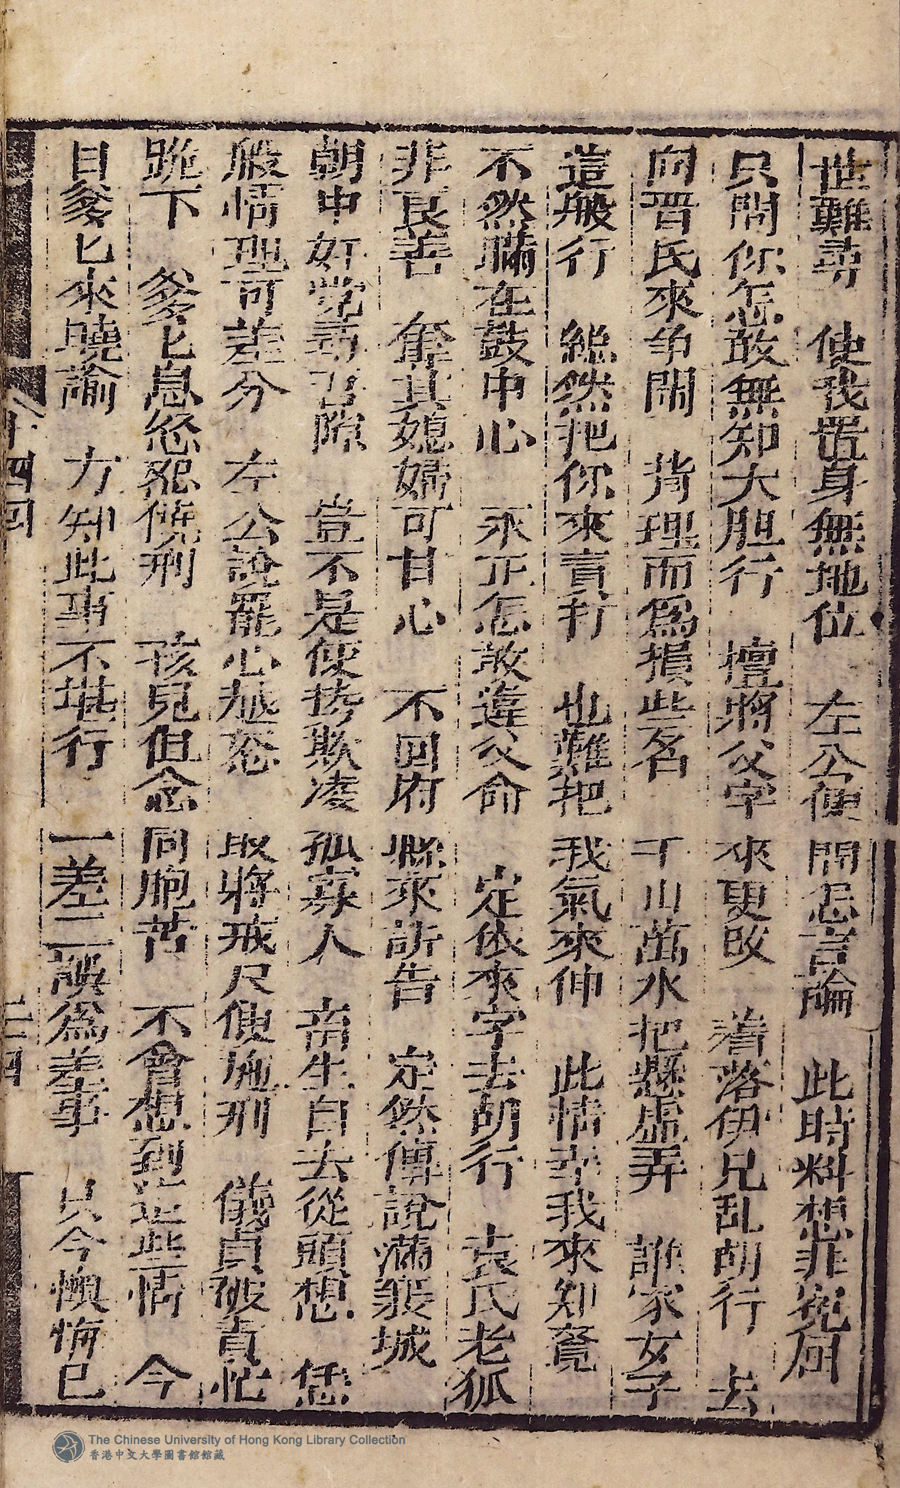 世難尋　使我置身無地位　左公便問怎言論　此時料想非寃屈
只問你怎敢無知大胆行　擅將父字來更改　着落伊兄乱胡行　去
向晋氏來争鬧　背理而爲損些名　千山萬水把懸虛弄　誰家女子
這般行　縱然把你來責打　也難把我氣來伸　此情幸我來知覺
不然瞞在鼓中心　永正怎敢違父命　定依來字去胡行　袁氏老狐
非良善　奪其媳婦可甘心　不回府縣來訴告　定然傳說滿襄城
朝中奸党尋舌隙　豈不是便捞欺凌孤寡人　畜生自去從頭想　恁
般情理可差分　左公說罷心越怒　取將戒尺便施刑　儀貞被責忙
跪下　爹匕息怒恕饒刑　孩兒但念同胞苦　不曾想到這些情　今
日爹匕來曉諭　方知此事不堪行　一差二誤爲差事　只今懊悔已
十四回
二四
The Chinese University of Hong Kong Library Collection
香港中文大學圖書館館藏